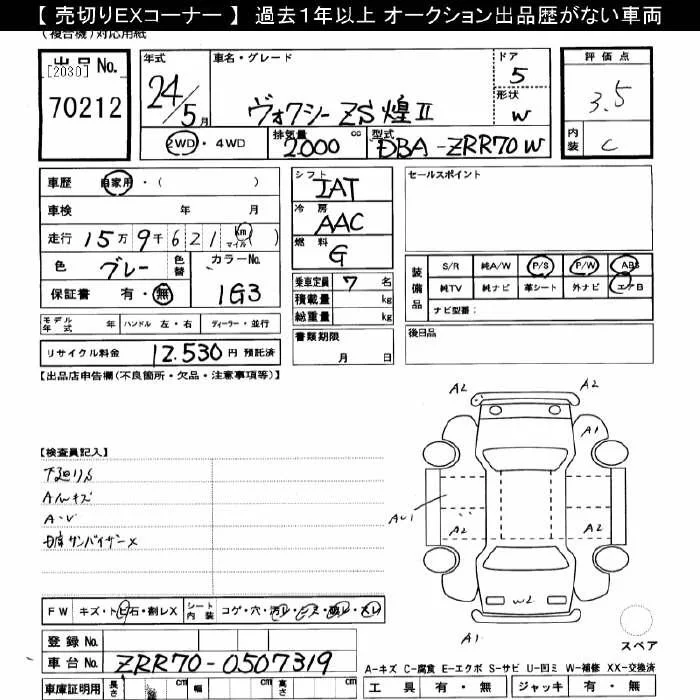 【 売切りEXコーナー 】 過去１年以上 オークション出品歴がない車両
(複合機)対応用紙
出品 No.
[2030]
70212
年式
24/5月
車名・グレード
ヴォクシー ZS 煌Ⅱ
ドア
5
形状
W
評価点
3.5
内装
C
2WD・4WD
排気量
2000 cc
型式
DBA-ZRR70W
車歴 自家用・( )
車検 年 月
走行 15万9千621 km マイル ( )
色 グレー 色替
カラーNo.
1G3
保証書 有・無
シフト
IAT
冷房
AAC
燃料
G
乗車定員 7 名
積載量 kg
総重量 kg
書類期限
月 日
セールスポイント
装備品
S/R 純A/W P/S P/W ABS
純TV 純ナビ 革シート 外ナビ エアB
ナビ型番:
後日品
モデル年式 年 ハンドル 左・右 ディーラー・並行
リサイクル料金 12,530 円 預託済
【出品店申告欄(不良箇所・欠品・注意事項等)】
【検査員記入】
下廻りS
Aルキズ
A・V
日席サンバイザー×
A2
A2
A2
A1
AU1
A2
A2
W2
A1
スペア
FW キズ・トビ石・割レX
シート内装 コゲ・穴・汚レ・スレ・破レ・大レ
登録 No.
車台 No. ZRR70-0507319
車庫証明用 長さ cm 幅 cm 高さ cm
A-キズ C-腐食 E-エクボ S-サビ U-凹ミ W-補修 XX-交換済
工具 有・無 ジャッキ 有・無